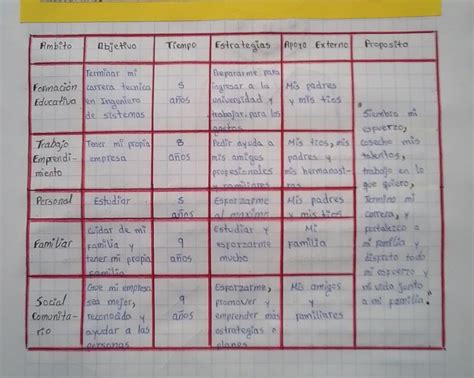 Ambito Objetivo Tiempo Estrategias Apoyo Externo Proposito
Formación
Educativa
Terminar mi
carrera tecnica
en Ingeniero
de sistemas
5
años
Prepararme para
ingresar a la
universidad y
trabajar para los
gastos
Mis padres
y mis tios
Trabajo
Emprendi-
miento
Tener mi propia
empresa
8
años
Pedir ayuda a
mis amigos
profesionales
y familiares
Mis tios, mis
padres y
mis hermanos
Personal
Estudiar
5
años
Esforzarme
al maximo
Mis padres
y mis tios
Familiar
Cuidar de mi
familia y
tener mi propia
familia
9
años
Estudiar y
esforzarme
mucho
Mi
familia
Social
Comunita-
rio
Que mi empresa
sea mejor,
reconocida y
ayudar a las
personas
9
años
Esforzarme,
promover y
emprender más
estrategias o
planes
Mis amigos
y
familiares
"Siembro mi
esfuerzo,
cosecho mis
talentos,
trabajo en lo
que quiero,
Termino mi
carrera, y
fortalezco a
mi familia y
disfruto todo
mi esfuerzo y
mi vida junto
a mi familia."